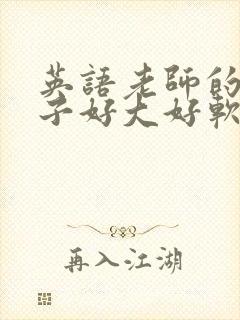 英語老師的
子好大好軟
再入江湖